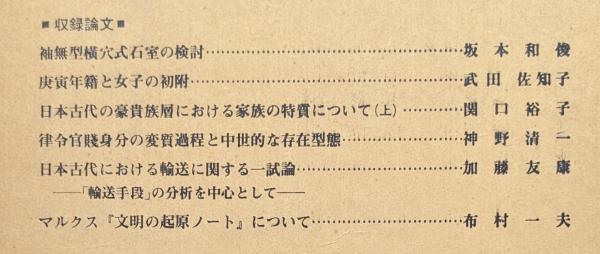 ■収録論文■
袖無型横穴式石室の検討……………………………坂本和俊
庚寅年籍と女子の初附………………………………武田佐知子
日本古代の豪貴族層における家族の特質について(上)…………関口裕子
律令官賤身分の変質過程と中世的な存在型態……………神野清一
日本古代における輸送に関する一試論……………………加藤友康
――「輸送手段」の分析を中心として――
マルクス『文明の起原ノート』について……………………布村一夫